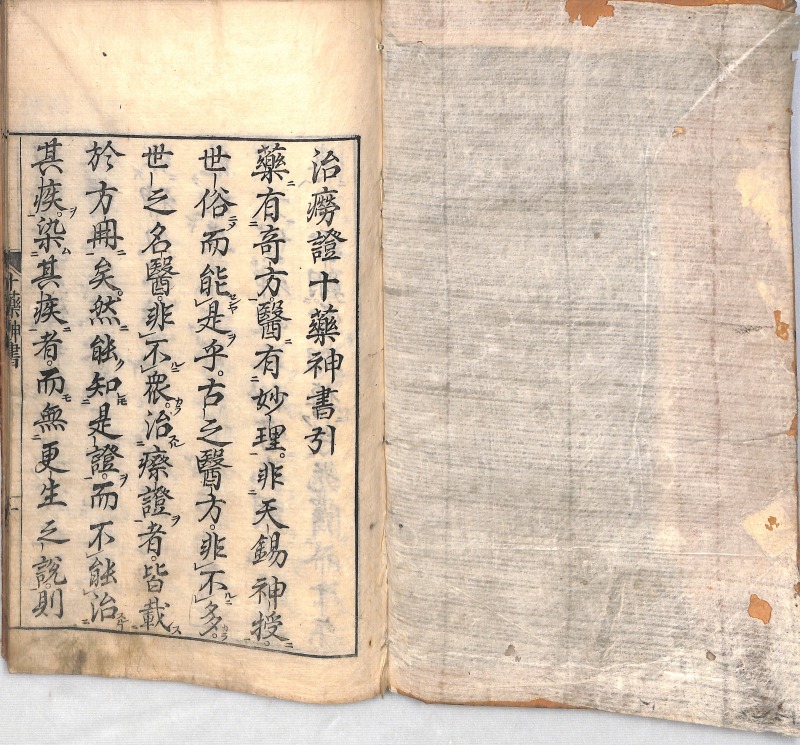 治癆證十藥神書引
藥有奇方。醫有妙理。非天錫神授。
世俗而能是乎。古之醫方。非不多。
世之名醫。非不衆。治瘵證者。皆載
於方冊矣。然能知是證。而不能治
其疾。染其疾者。而無更生之說。則
十藥神書